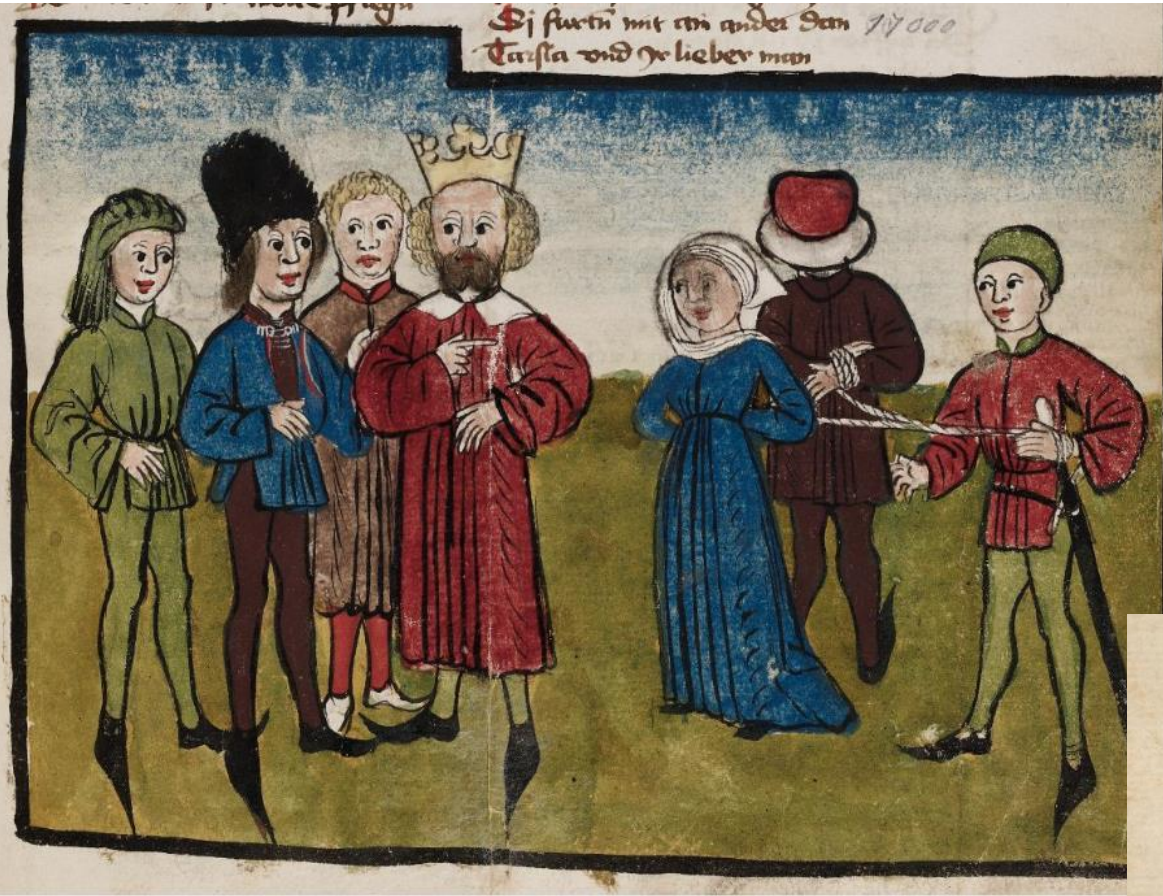 Sj furtn mit ain ander dan 17000
Tarsia vnd Jr lieber man